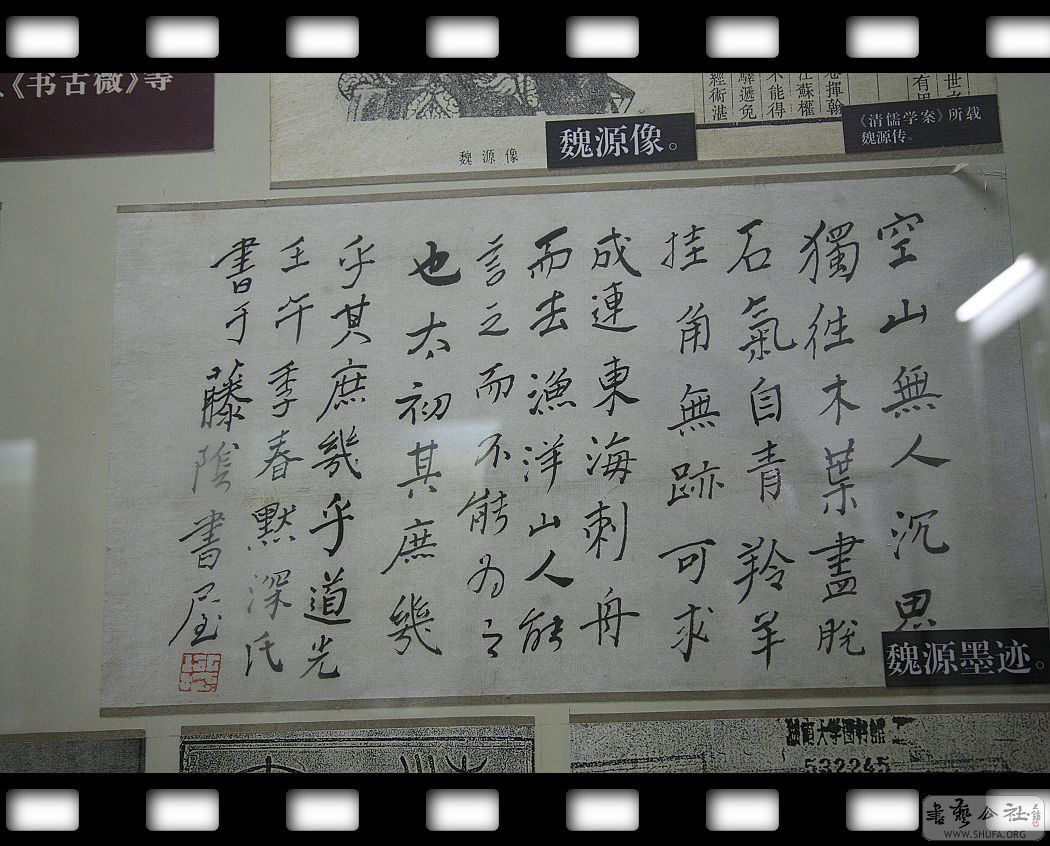 《书古微》等
魏源像
魏源像。
《清儒学案》所载
魏源传。
空山無人沉思
獨往木葉盡脫
石氣自青羚羊
挂角無跡可求
成連東海刺舟
而去漁洋山人能
言之而不能為之
也太初其庶幾
乎其庶幾乎道光
壬午季春默深氏
書于藤陰書屋
魏源墨迹。
532245
書藝公社
WWW.SHUFA.ORG